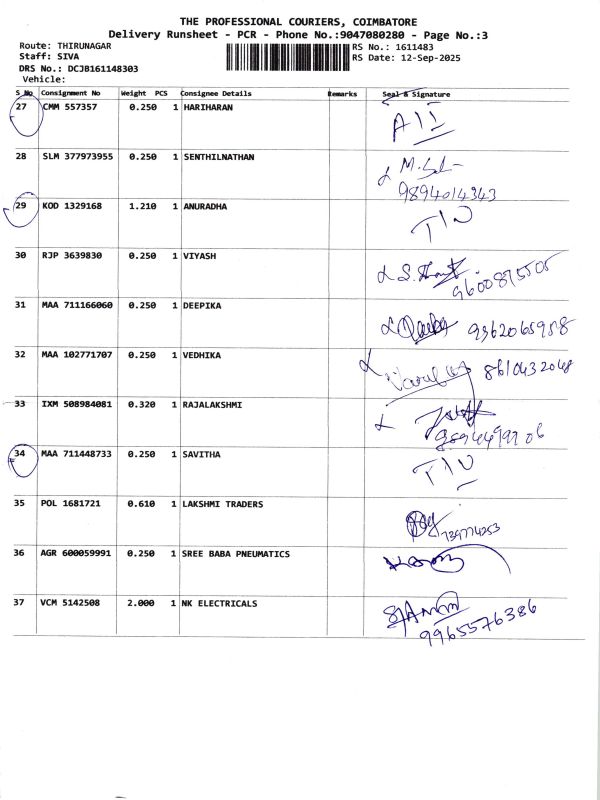 THE PROFESSIONAL COURIERS, COIMBATORE
Delivery Runsheet - PCR - Phone No.:9047080280 - Page No.:3
Route: THIRUNAGAR RS No.: 1611483
Staff: SIVA RS Date: 12-Sep-2025
DRS No.: DCJB161148303
Vehicle:
S No Consignment No Weight PCS Consignee Details Remarks Seal & Signature
27 CMM 557357 0.250 1 HARIHARAN
28 SLM 377973955 0.250 1 SENTHILNATHAN
9894014343
29 KOD 1329168 1.210 1 ANURADHA
30 RJP 3639830 0.250 1 VIYASH
9600875505
31 MAA 711166060 0.250 1 DEEPIKA
9962065958
32 MAA 102771707 0.250 1 VEDHIKA
8610432048
33 IXM 508984081 0.320 1 RAJALAKSHMI
34 MAA 711448733 0.250 1 SAVITHA
35 POL 1681721 0.610 1 LAKSHMI TRADERS
36 AGR 600059991 0.250 1 SREE BABA PNEUMATICS
37 VCM 5142508 2.000 1 NK ELECTRICALS
9965576386